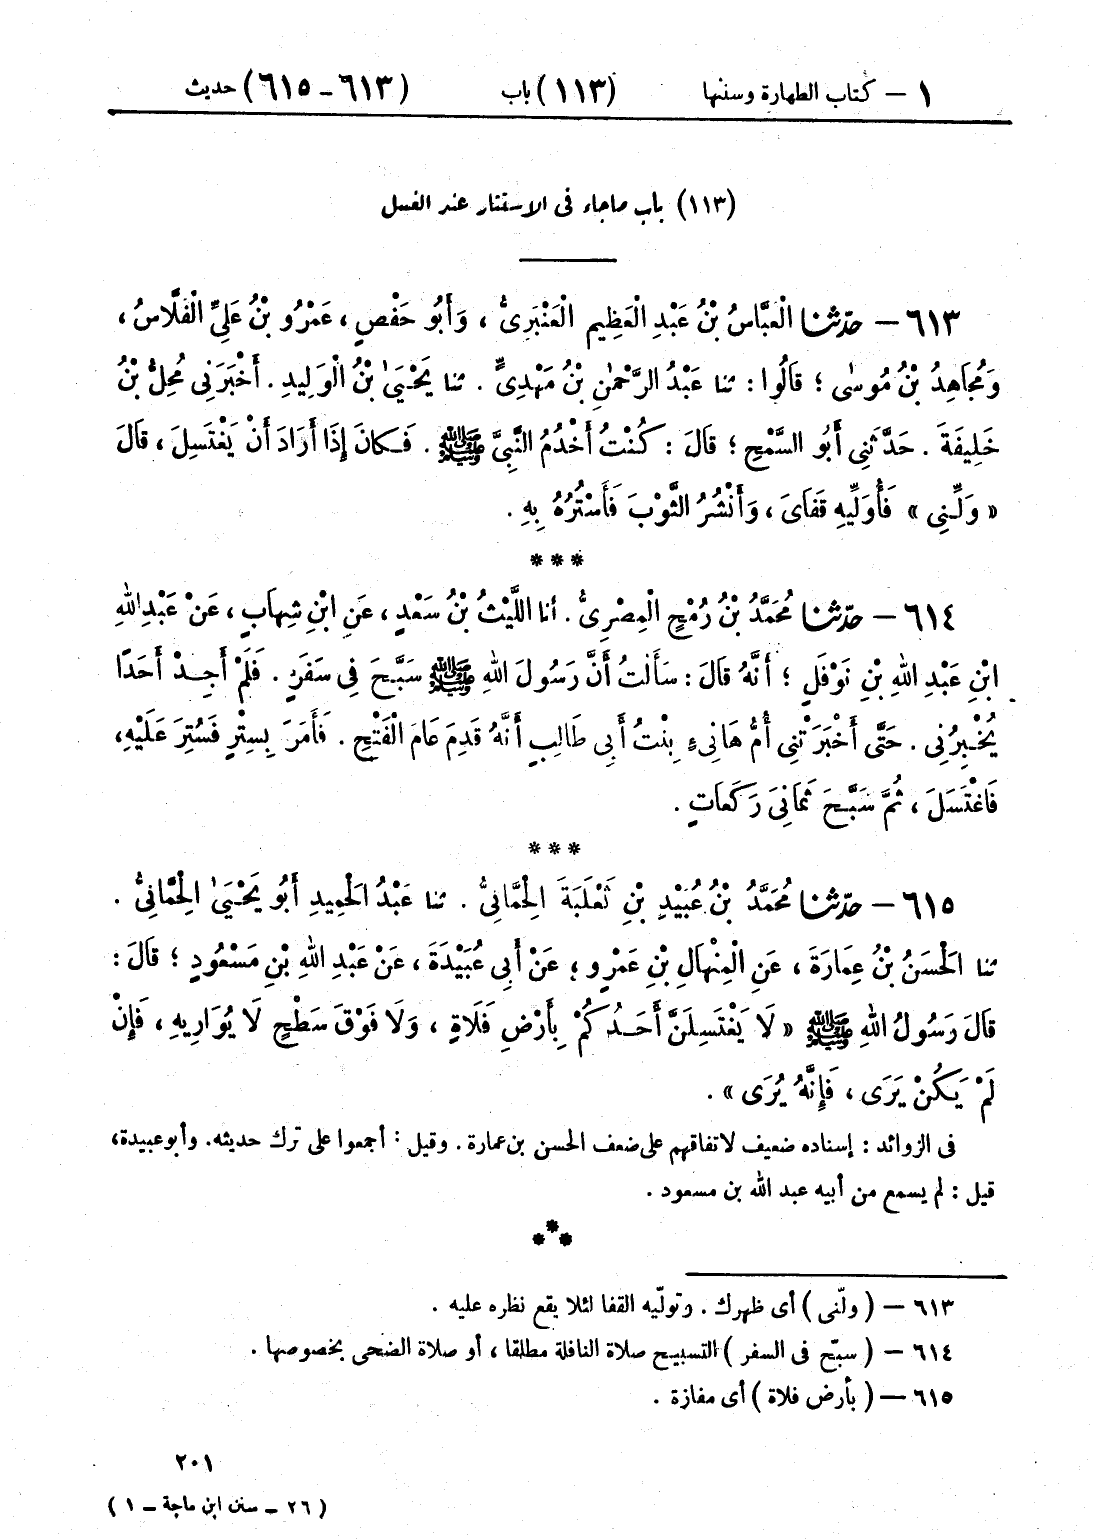 ١ – كتاب الطهارة وسننها (١١٣) باب (٦١٣ – ٦١٥) حديث
(١١٣) باب ماجاء فى الاستتار عند الغسل
٦١٣ – حدّثنا الْعَبَّاسُ بْنُ عَبْدِ الْعَظِيمِ الْعَنْبَرِىُّ ، وَأَبُو حَفْصٍ ، عَمْرُو بْنُ عَلِيٍّ الْفَلَّاسُ ،
وَمُجَاهِدُ بْنُ مُوسٰى ؛ قَالُوا : ثنا عَبْدُ الرَّحْمٰنِ بْنُ مَهْدِىٍّ . ثنا يَحْيَىٰ بْنُ الْوَلِيدِ . أَخْبَرَنِى مُحِلُّ بْنُ
خَلِيفَةَ . حَدَّثَنِى أَبُو السَّمْحِ ؛ قَالَ : كُنْتُ أَخْدُمُ النَّبِىَّ ﷺ . فَكَانَ إِذَا أَرَادَ أَنْ يَغْتَسِلَ ، قَالَ
« وَلِّنِى » فَأُوَلِّيهِ قَفَاىَ ، وَأَنْشُرُ الثَّوْبَ فَأَسْتُرُهُ بِهِ .
***
٦١٤ – حدّثنا مُحَمَّدُ بْنُ رُمْحٍ الْمِصْرِىُّ . أنا اللَّيْثُ بْنُ سَعْدٍ ، عَنِ ابْنِ شِهَابٍ ، عَنْ عَبْدِ اللهِ
ابْنِ عَبْدِ اللهِ بْنِ نَوْفَلٍ ؛ أَنَّهُ قَالَ : سَأَلْتُ أَنَّ رَسُولَ اللهِ ﷺ سَبَّحَ فِى سَفَرٍ . فَلَمْ أَجِدْ أَحَدًا
يُخْبِرُنِى . حَتَّى أَخْبَرَتْنِى أُمُّ هَانِىءٍ بِنْتُ أَبِى طَالِبٍ أَنَّهُ قَدِمَ عَامَ الْفَتْحِ . فَأَمَرَ بِسِتْرٍ فَسُتِرَ عَلَيْهِ ،
فَاغْتَسَلَ ، ثُمَّ سَبَّحَ ثَمَانِىَ رَكَعَاتٍ .
***
٦١٥ – حدّثنا مُحَمَّدُ بْنُ عُبَيْدِ بْنِ ثَعْلَبَةَ الْحِمَّانِىُّ . ثنا عَبْدُ الْحَمِيدِ أَبُو يَحْيَىٰ الْحِمَّانِىُّ .
ثنا الْحَسَنُ بْنُ عِمَارَةَ ، عَنِ الْمِنْهَالِ بْنِ عَمْرٍو ؛ عَنْ أَبِى عُبَيْدَةَ ، عَنْ عَبْدِ اللهِ بْنِ مَسْعُودٍ ؛ قَالَ :
قَالَ رَسُولُ اللهِ ﷺ « لَا يَغْتَسِلَنَّ أَحَدُكُمْ بِأَرْضِ فَلَاةٍ ، وَلَا فَوْقَ سَطْحٍ لَا يُوَارِيهِ ، فَإِنْ
لَمْ يَكُنْ يَرَى ، فَإِنَّهُ يُرَى » .
فى الزوائد : إسناده ضعيف لاتفاقهم على ضعف الحسن بن عمارة . وقيل : أجمعوا على ترك حديثه . وأبو عبيدة ،
قيل : لم يسمع من أبيه عبد الله بن مسعود .
***
٦١٣ – ( ولّنى ) أى ظهرك . وتولّيه القفا لئلا يقع نظره عليه .
٦١٤ – ( سبّح فى السفر ) التسبيح صلاة النافلة مطلقا ، أو صلاة الضحى بخصوصها .
٦١٥ – ( بأرض فلاة ) أى مفازة .
٢٠١
( ٢٦ – سنن ابن ماجة – ١ )